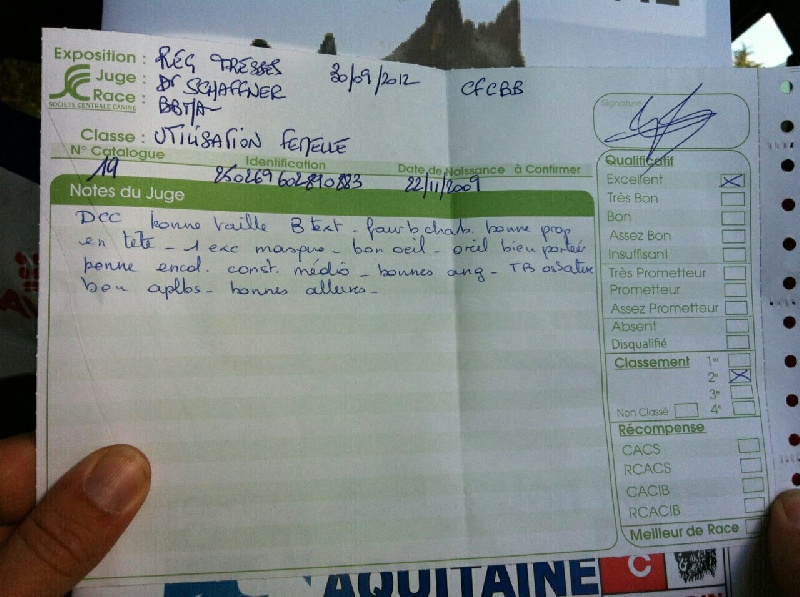 Exposition : REG TRESSES 30/09/2012 CFCBB
Juge : Dr SCHAFFNER
Race : BBT/A-
SOCIETE CENTRALE CANINE
Classe : UTILISATION FEMELLE
N° Catalogue Identification Date de Naissance à Confirmer
19 250269602810883 22/11/2009
Notes du Juge
DCC bonne taille B text - fauve b charb. bonne prop
en tête - 1 exc masque - bon oeil - oreil bien portée
bonne encol. const. médio - bonnes ang - TB ossature
bon aplbs - bonnes allures -
Signature
Qualificatif
Excellent
Très Bon
Bon
Assez Bon
Insuffisant
Très Prometteur
Prometteur
Assez Prometteur
Absent
Disqualifié
Classement 1er
2e
3e
Non Classé 4e
Récompense
CACS
RCACS
CACIB
RCACIB
Meilleur de Race
AQUITAINE
C